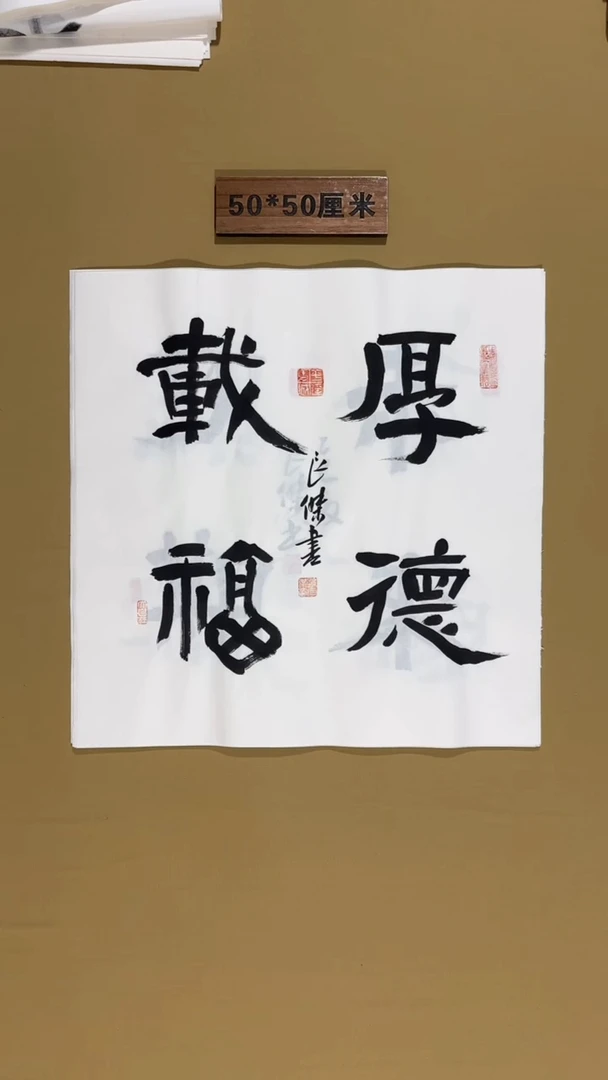 50*50厘米
厚德
載福
良傑書